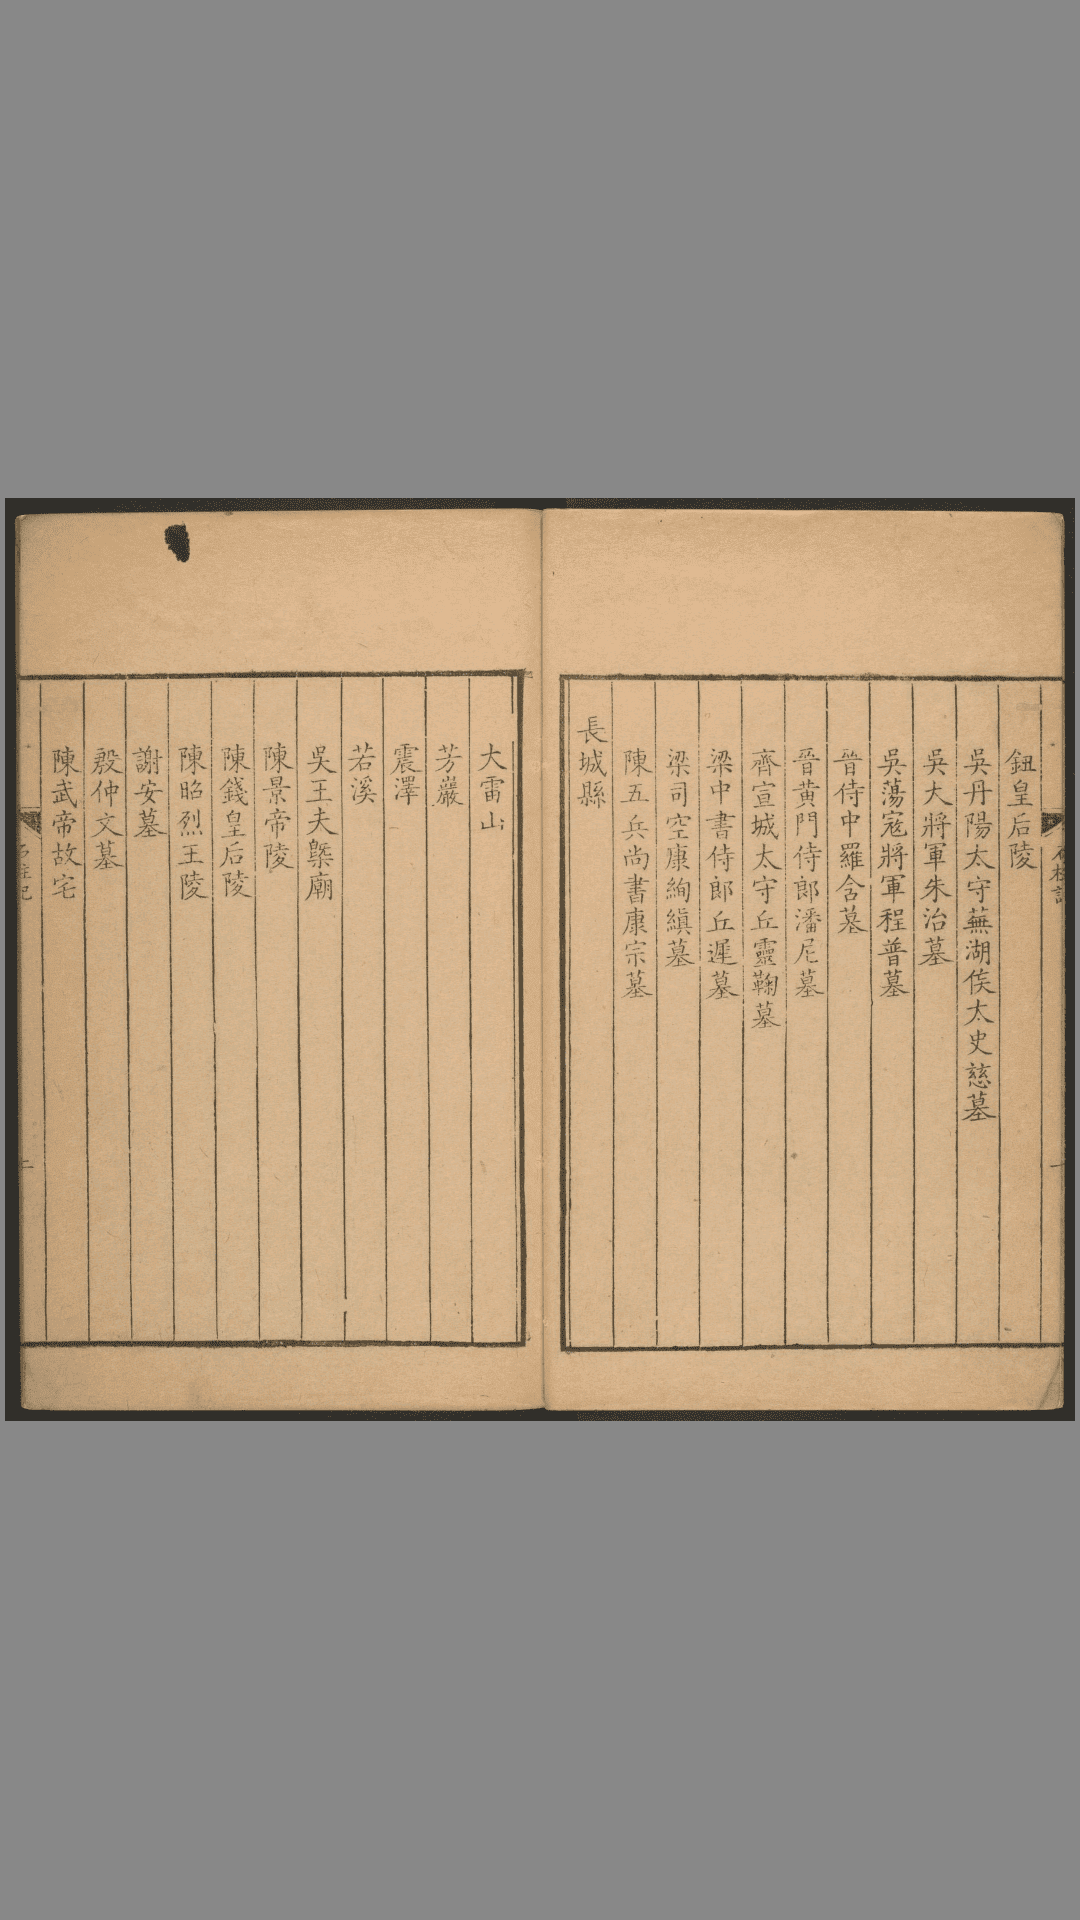 石柱記
鈕皇后陵
吳丹陽太守蕪湖侯太史慈墓
吳大將軍朱治墓
吳蕩寇將軍程普墓
晉侍中羅含墓
晉黃門侍郎潘尼墓
齊宣城太守丘靈鞠墓
梁中書侍郎丘遲墓
梁司空康絢縝墓
陳五兵尚書康宗墓
長城縣
大雷山
芳巖
震澤
若溪
吳王夫槩廟
陳景帝陵
陳錢皇后陵
陳昭烈王陵
謝安墓
殷仲文墓
陳武帝故宅